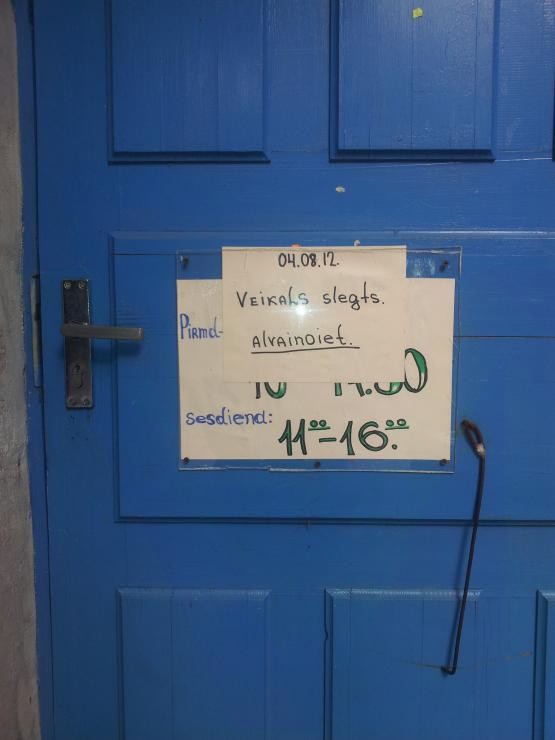 04.08.12.
Veikals slegts.
Atvainoiet.
Pirmd-
sesdiena:
11⁰⁰-16⁰⁰.